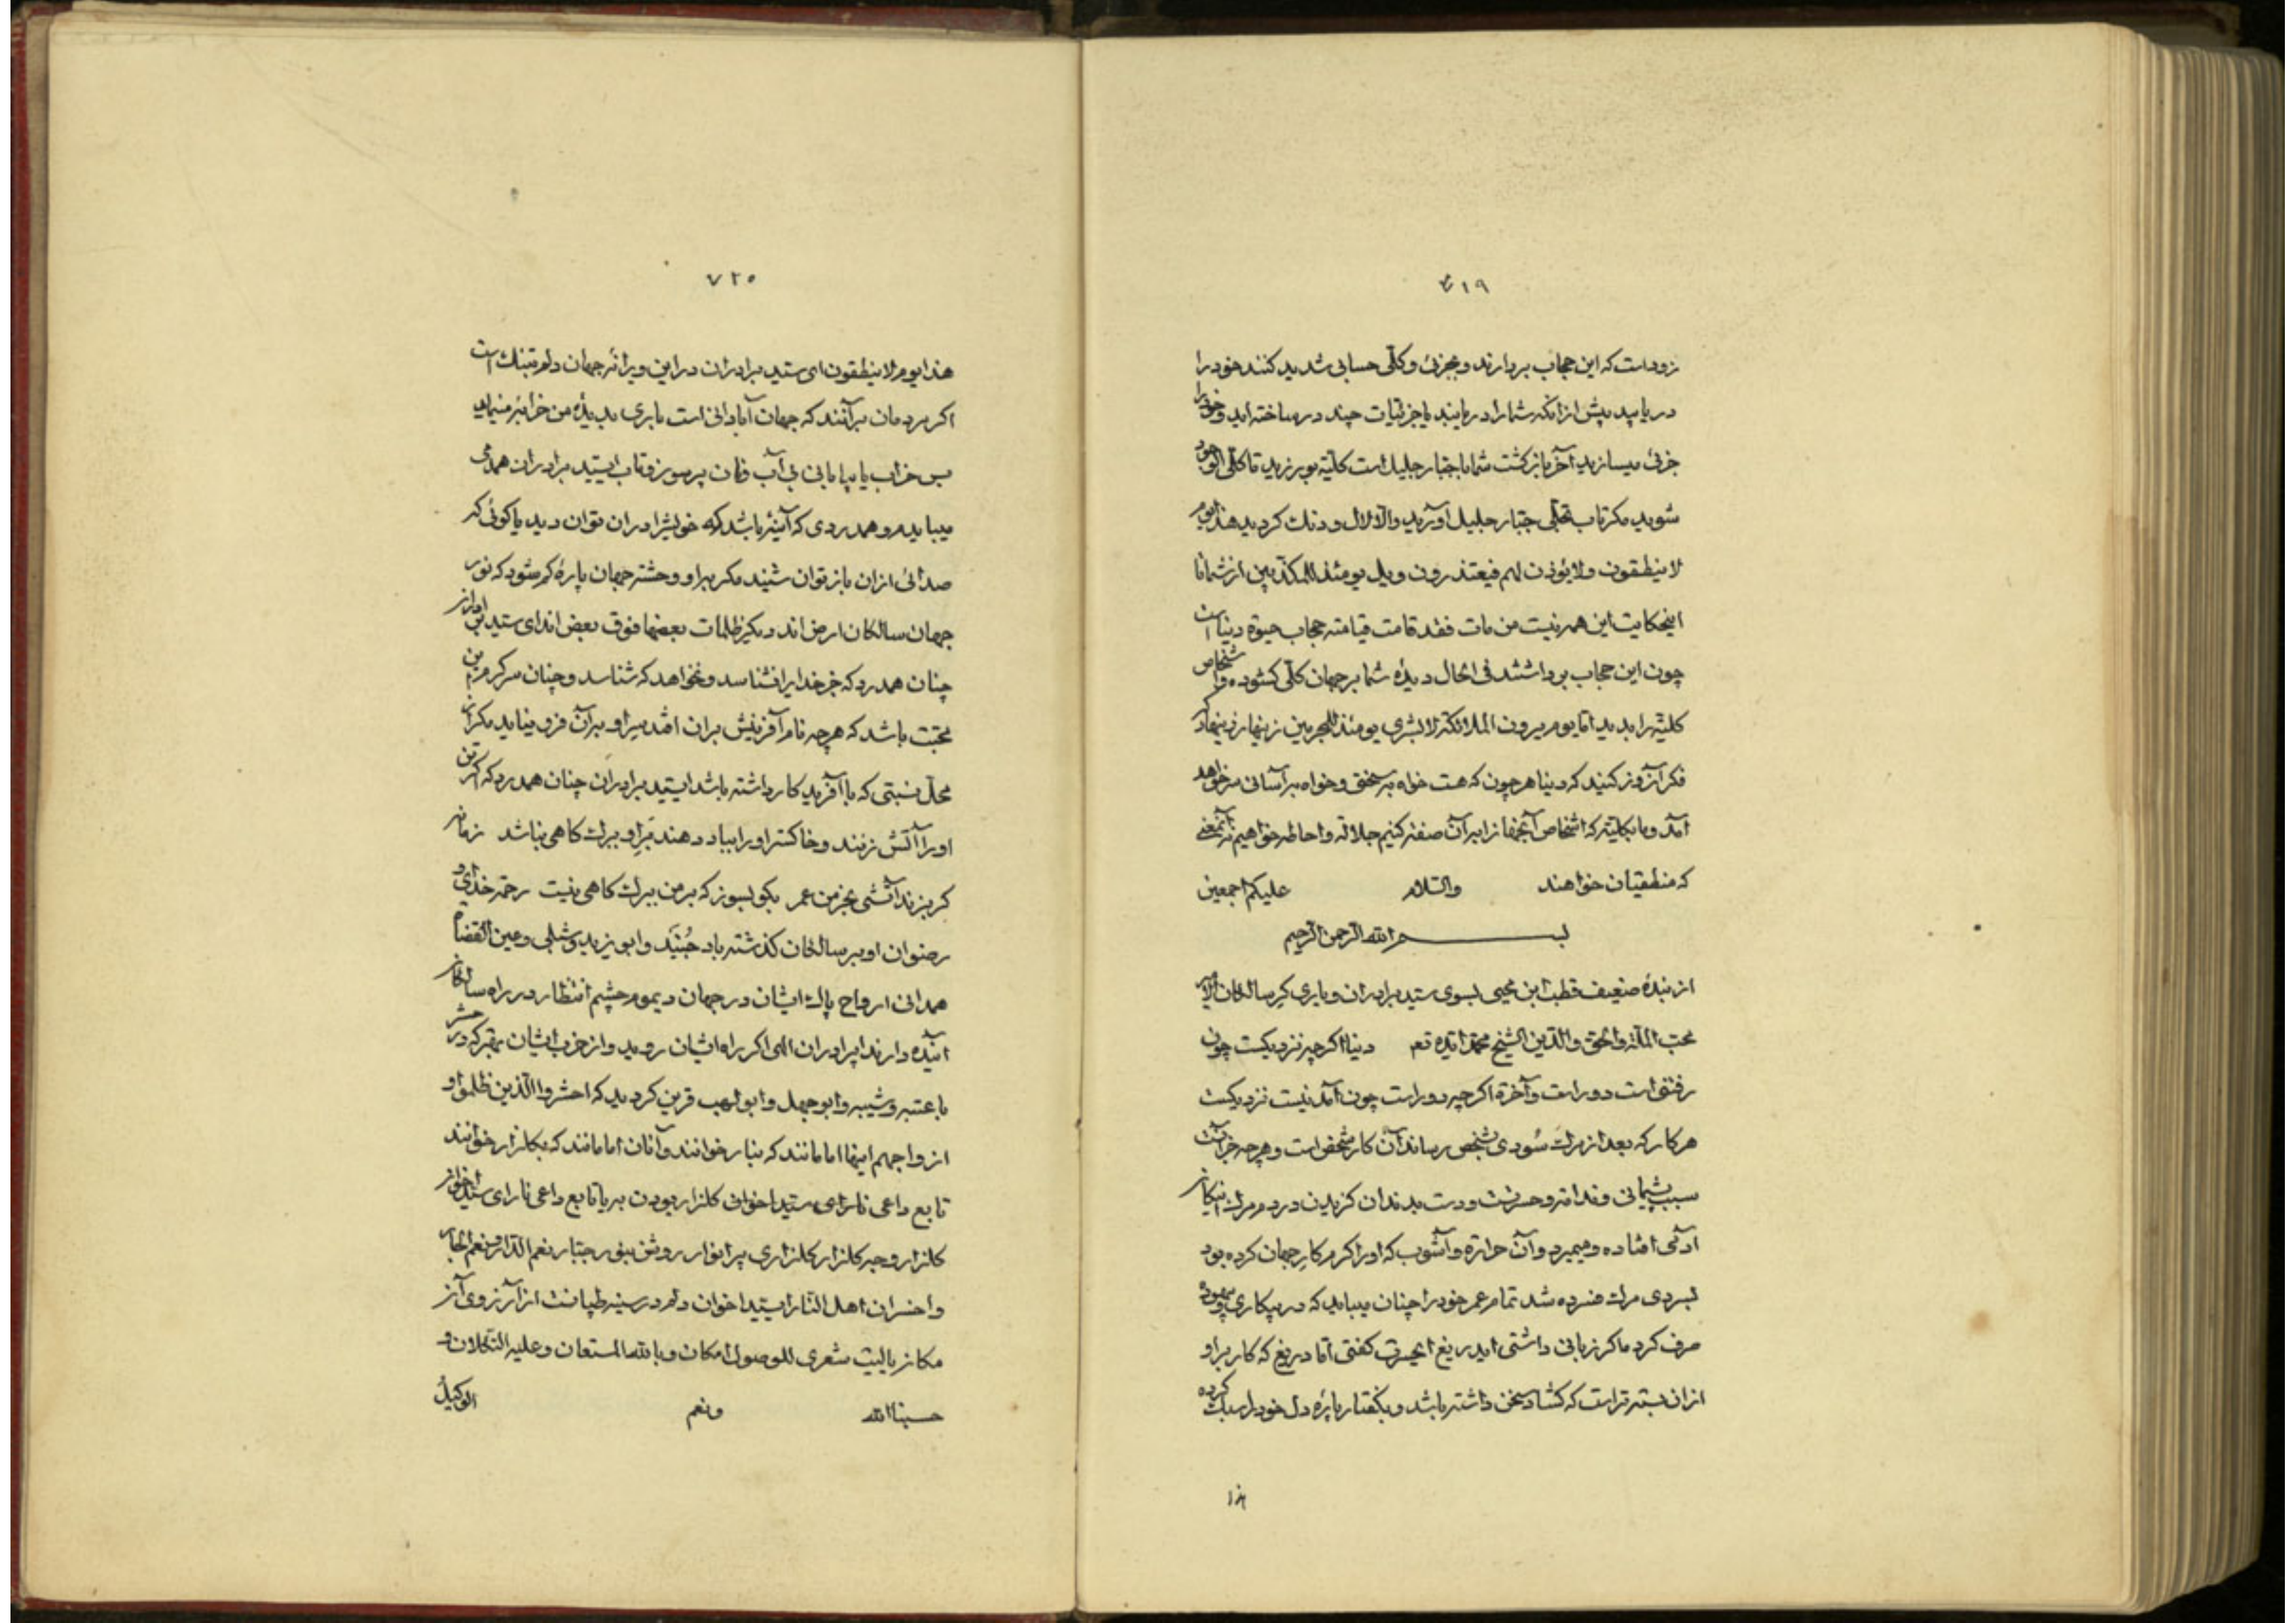 ۷۱۹
زوداست که این حجاب بردارند و بجزئی و کلی حسابی شدید کنند خود را
دریابید پیش از آنکه شما را دریابند با جزئیات چند در ساخته اید و خود را
جزئی میسازید آخر بازگشت شما با جبار جلیل است کلیته بورزید تا کلی الوجود
شوید مکر تاب تجلی جبار جلیل آورید والا لال و دنك کردید هذا یوم
لا ینطقون ولا یؤذن لهم فیعتذرون ویل یومئذ للمکذبین از شما تا
اینحکایت این همه نیست من مات فقد قامت قیامته حجاب حیوة دنیا است
چون این حجاب برداشتند فی الحال دیده شما بر جهان کلی کشوده و اشخاص
کلیته را بدید اما یوم یرون الملائکة لا بشری یومئذ للمجرمین زینهار زینهار که
فکر آنروز کنید که دنیا هرچون که هست خواه بسختی و خواه بآسانی سرخواهد
آمد و ما بکلیته که اشخاص آنجهانرا بر آن صفته کنیم جلالة واحاطه خواهیم نه آنمعنی
که منطقیان خواهند والسلام علیکم اجمعین
بسم الله الرحمن الرحیم
از بنده ضعیف قطب ابن محیی بسوی سید برادران و یاری کر سالکان
محب الملة والحق والدین الشیخ محمد ایده تعم دنیا اکرچه نزدیکست چون
رفتنی است دور است و آخرة اکرچه دور است چون آمدنیست نزدیکست
هر کار که بعد از مرك سودی بشخص رساند آن کار شخص است و هرچه جز آنست
سبب پشیمانی و ندامة و حسرتست و دست بدندان کزیدن در دم مرك اینکار
آدمی افتاده و میمیرد و آن حرارة و آشوب که او را کرم کار جهان کرده بود
بسردی مرك فسرده شد تمام عمر خود را چنان مییابد که در بیکاری و بیهوده
صرف کرد ما کر زبانی داشتی ایدریغ ایحسرت کفتی اما دریغ که کار بر او
از ان بسته تر است که کشاد سخن داشته باشد و بکفتار پاره دل خود را سبك کرده
۷۲۰
هذا یوم لا ینطقون ای سید برادران در این ویرانه جهان دلم تنك است
اکر مردمان برآنند که جهان آبادانی است باری بدیده من خرابه مینماید
بس خراب یا بیابانی بی آب و نان پر سوز و تاب ای سید برادران همدمی
میباید و همدردی که آینه باشد که خویش را در آن توان دید یا کوئی که
صدائی از آن باز توان شنید مکر براو وحشته جهان پاره کم شود که نور
جهان سالکان ارض اند دیکر ظلمات بعضها فوق بعض اند ای سید
چنان همدرد که جز خدایرا نشناسد و نخواهد که شناسد و چنان سرکرم
محبت باشد که هرچه نام آفرینش بران افتد سر او بر آن فرو نیاید مکر از
محل نسبتی که با آفریدکار داشته باشد ای سید برادران چنان همدرد که اکر تن
او را آتش زنند و خاکستر او را بباد دهند بر او برك کاهی نباشد
کر بزند آتشی بخرمن عمر بکو بسوز که بر من ببرك کاهی نیست رحمة خدای و
رضوان او بر سالکان کذشته باد جنید و ابو یزید و شبلی و عین القضاة
همدانی ارواح پاك ایشان در جهان دیموم چشم انتظار در راه سالکان
آینده دارند ایبرادران الهی اکر براه ایشان روید و از حزب ایشان بهتر که در حشر
با عتبه و شیبه و ابوجهل و ابولهب قرین کردید که احشروا الذین ظلموا و
ازواجهم اینها امامانند که بنار خوانند و آنان امامانند که بکلزار خوانند
تابع داعی نار ای سید اخوان کلزار بودن به یا تابع داعی نار ای سید اخوان
کلزار و چه کلزار کلزاری پر انوار روشن بنور جبار نعم الدار و نعم الجار
واخسران اهل النار ای سید اخوان دلم در سینه طپانست از آرزوی آن
مکان یا لیت شعری للوصول امکان و بالله المستعان و علیه التکلان و
حسبنا الله ونعم الوکیل